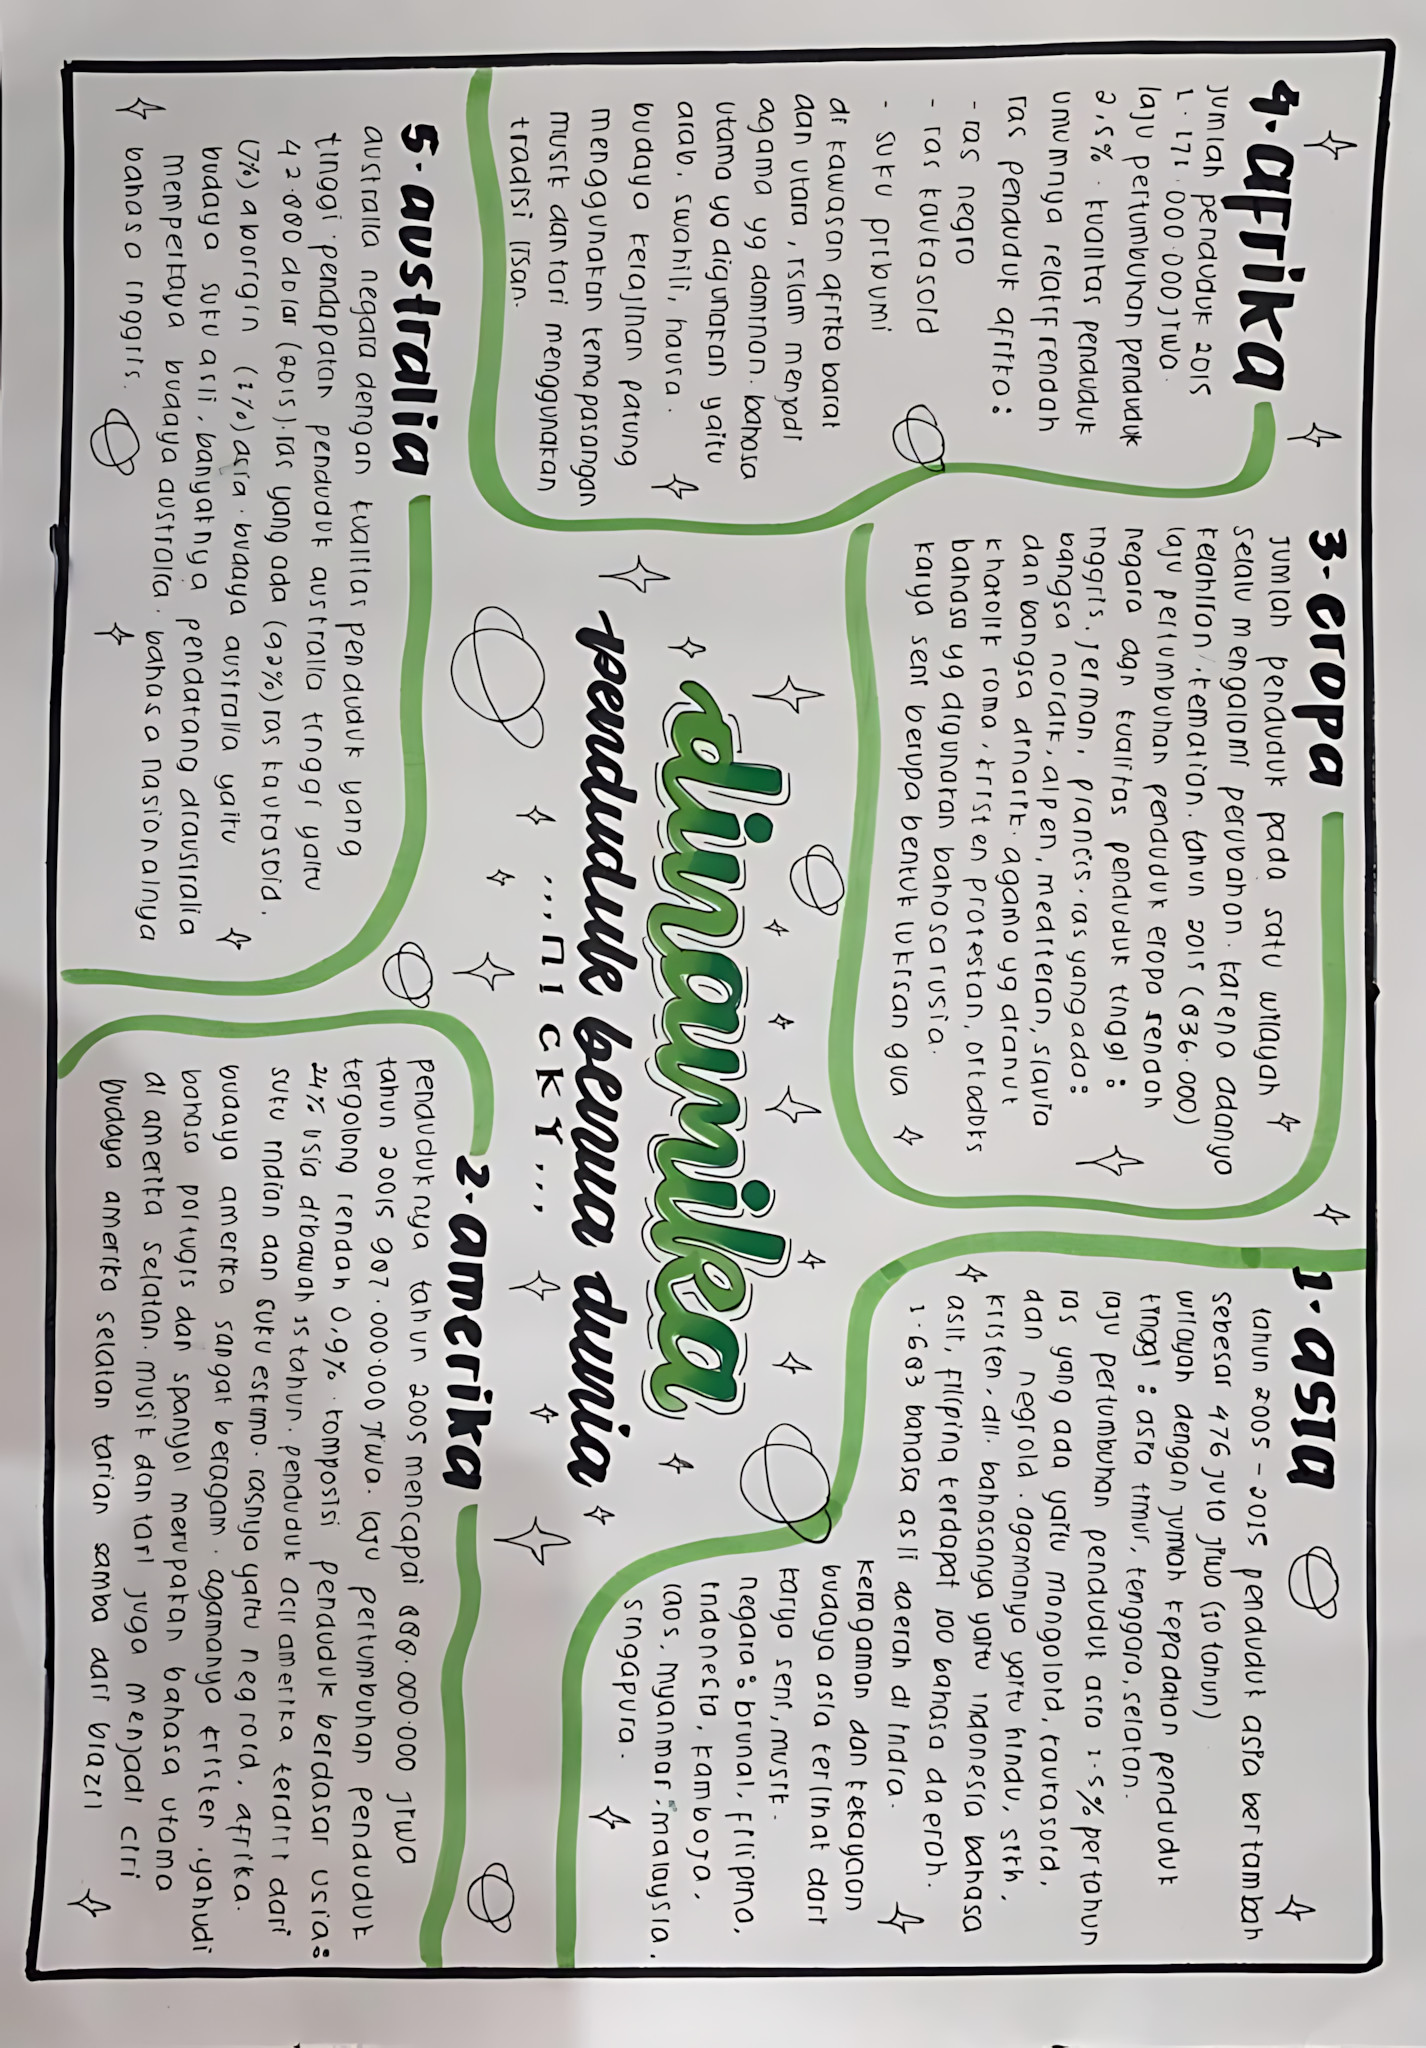 dinamika
penduduk benua dunia
,,,nicky,,,
1. asia
tahun 2005 - 2015 penduduk asia bertambah
sebesar 476 juta jiwa (10 tahun)
wilayah dengan jumlah kepadatan penduduk
tinggi : asia timur, tenggara, selatan.
laju pertumbuhan penduduk asia 1.5% pertahun
ras yang ada yaitu mongoloid, kaukasoid,
dan negroid. agamanya yaitu hindu, sikh,
kristen, dll. bahasanya yaitu indonesia bahasa
asli, filipina terdapat 100 bahasa daerah.
1.683 bahasa asli daerah di india.
keragaman dan kekayaan
budaya asia terlihat dari
karya seni, musik.
negara : brunai, filipina,
indonesia, kamboja,
laos, myanmar, malaysia,
singapura.
2. amerika
penduduknya tahun 2005 mencapai 888.000.000 jiwa
tahun 20015 987.000.000 jiwa. laju pertumbuhan penduduk
tergolong rendah 0,9%. komposisi penduduk berdasar usia :
24% usia dibawah 15 tahun. penduduk asli amerika terdiri dari
suku indian dan suku eskimo. rasnya yaitu negroid, afrika.
budaya amerika sangat beragam. agamanya kristen, yahudi
bahasa portugis dan spanyol merupakan bahasa utama
di amerika selatan. musik dan tari juga menjadi ciri
budaya amerika selatan tarian samba dari brazil
3. eropa
jumlah penduduk pada satu wilayah
selalu mengalami perubahan. karena adanya
kelahiran, kematian. tahun 2015 (836.000)
laju pertumbuhan penduduk eropa rendah
negara dgn kualitas penduduk tinggi :
inggris, jerman, prancis. ras yang ada :
bangsa nordik, alpen, mediteran, slavia
dan bangsa dinarik. agama yg dianut
khatolik roma, kristen protestan, ortodoks
bahasa yg digunakan bahasa rusia.
karya seni berupa bentuk lukisan gua
4. afrika
jumlah penduduk 2015
1.171.000.000 jiwa.
laju pertumbuhan penduduk
2,5%. kualitas penduduk
umumnya relatif rendah
ras penduduk afrika :
- ras negro
- ras kaukasoid
- suku pribumi
di kawasan afrika barat
dan utara, islam menjadi
agama yg dominan. bahasa
utama yg digunakan yaitu
arab, swahili, hausa.
budaya kerajinan patung
menggunakan tema pasangan
musik dan tari menggunakan
tradisi lisan.
5. australia
australia negara dengan kualitas penduduk yang
tinggi. pendapatan penduduk australia tinggi yaitu
42.880 dolar (2015). ras yang ada (92%) ras kaukasoid,
(7%) aborigin (1%) asia. budaya australia yaitu
budaya suku asli, banyaknya pendatang diaustralia
memperkaya budaya australia. bahasa nasionalnya
bahasa inggris.